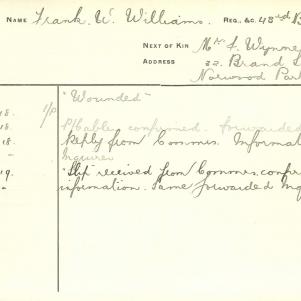 NAME Frank W. Williams. REG., &C. 48rd B
NEXT OF KIN
ADDRESS
Mrs F. Wynne
22. Brand S
Norwood Par
"Wounded"
18. P/Cable confirmed. forwarded
18. Reply from Commrs. Informat
Inquirer
19. "Slip" received from Commrs. confir
information. Same forwarded Inq